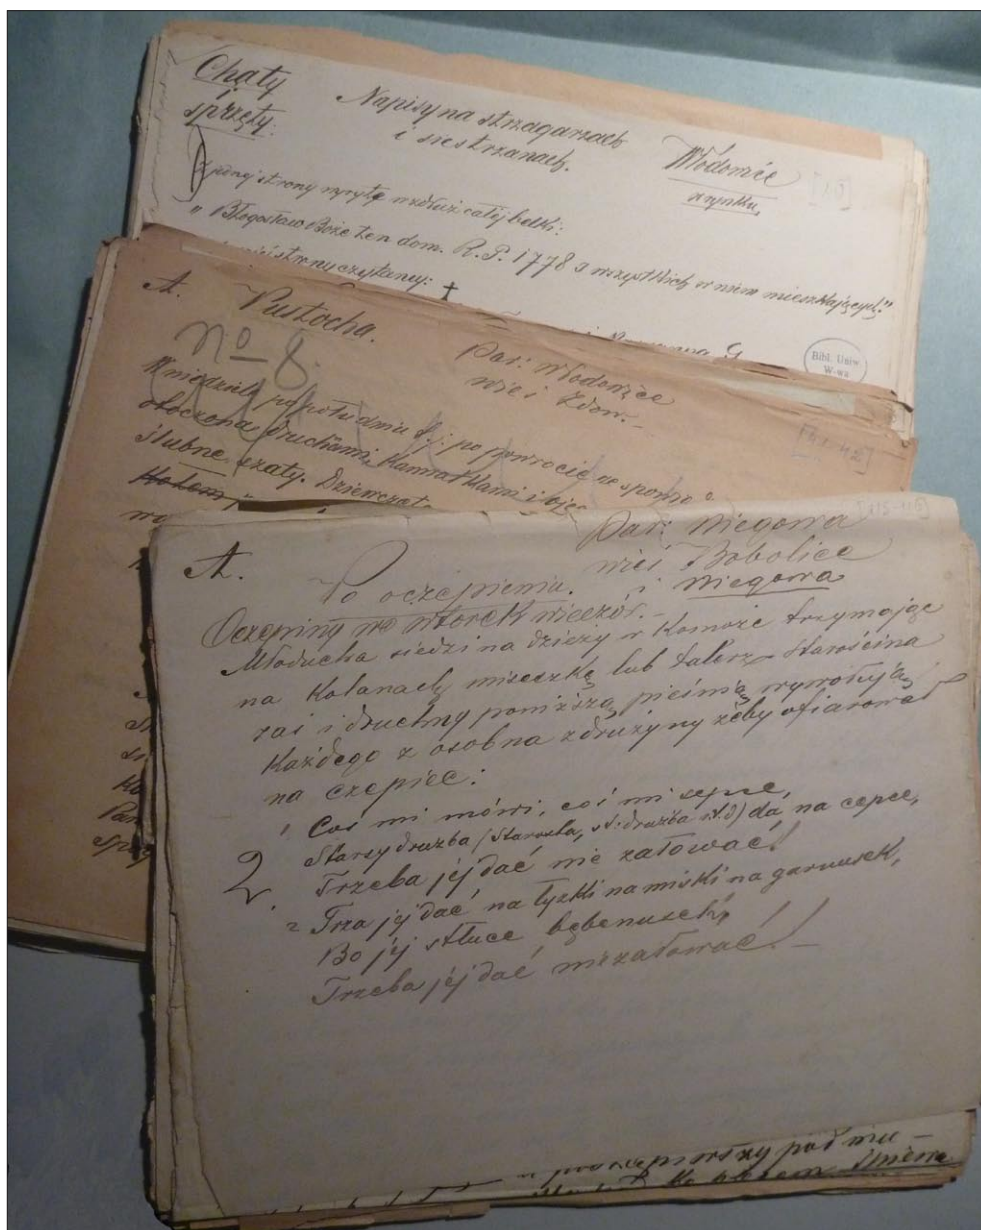 Chaty
i
sprzęty:
Napisy na strzagarzach
i siestrzanach.
Włodowice
z rynku,
[10]
z jednej strony wyryte wzdłuż całej belki:
" Błogosław Boże ten dom. R. P. 1778 i wszystkich w nim mieszkających."
strony czytamy: †
Bibl. Uniw.
W-wa
A. Pustocha.
No 8.
Par: Włodowice
wieś Zdów.-
W niedzielę po południu t.j: po powrocie ze
otoczona druchami, kamratkami i
ślubne szaty. Dziewczęta
A.
Par: Niegowa
wieś Bobolice
i Niegowa
Po oczepieniu.
Oczepiny we wtorek wieczór.-
Młoducha siedzi na dzieży w komorze trzymając
na kolanach miseczkę lub talerz. Starościna
zaś i druchny poniższą pieśnią wywołują
każdego z osobna z drużyny żeby ofiarował
na czepiec:
1 Coś mi mówi, coś mi sepce,
Starsy druzba (Starosta, st. druzba i t. d) da na cepce,
2. Trzeba jej dać nie załować!
2 Trza jej dać na łyzki na miski na garnusek,
Bo jej stłuce bębenusek,
Trzeba jej dać nie załować!-